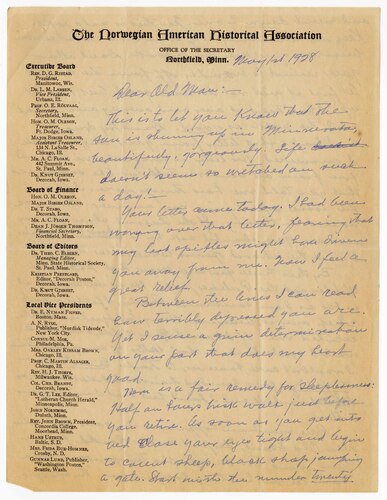 The Norwegian American Historical Association
OFFICE OF THE SECRETARY
Northfield, Minn. May 1st 1928
Executive Board
REV. D. G. RISTAD,
President,
Manitowoc, Wis.
DR. L. M. LARSON,
Vice President,
Urbana, Ill.
PROF. O. E. RÖLVAAG,
Secretary,
Northfield, Minn.
HON. O. M. OLESON,
Treasurer,
Ft. Dodge, Iowa.
MAJOR BIRGER OSLAND,
Assistant Treasurer,
134 N. LaSalle St.,
Chicago, Ill.
MR. A. C. FLOAN,
482 Summit Ave.,
St. Paul, Minn.
DR. KNUT GJERSET,
Decorah, Iowa.
Board of Finance
HON. O. M. OLESON,
MAJOR BIRGER OSLAND,
DR. T. STABO,
Decorah, Iowa.
MR. A. C. FLOAN,
DEAN J. JÖRGEN THOMPSON,
Financial Secretary,
Northfield, Minn.
Board of Editors
DR. THEO. C. BLEGEN,
Managing Editor,
Minn. State Historical Society,
St. Paul, Minn.
KRISTIAN PRESTGARD,
Editor, "Decorah Posten",
Decorah, Iowa.
DR. KNUT GJERSET,
Decorah, Iowa.
Local Vice Presidents
DR. E. NYMAN FIGVED,
Boston, Mass.
A. N. RYGG,
Publisher, "Nordisk Tidende",
New York City.
CONSUL M. MOE,
Philadelphia, Pa.
MRS. OAKLEY KISSAM BROWN,
Chicago, Ill.
PROF. C. MARTIN ALSAGER,
Chicago, Ill.
REV. H. J. THORPE,
Milwaukee, Wis.
COL. CHR. BRANDT,
Decorah, Iowa.
DR. G. T. LEE, Editor
"Lutheran Church Herald",
Minneapolis, Minn.
JOHN NORDBERG,
Duluth, Minn.
REV. JOHN BROWN, President,
Concordia College,
Moorhead, Minn.
HANS USTRUD,
Baltic, S. D.
MRS. FRIDA BUE-HOMNES,
Crosby, N. D.
GUNNAR LUND, Publisher,
"Washington Posten",
Seattle, Wash.
Dear Old Man:—
This is to let you know that the
sun is shining up in Minnesota,
beautifully, gorgeously. Life
doesn't seem so wretched on such
a day!—
Your letter came today. I had been
worrying over that letter, fearing that
my last epistles might have driven
you away from me. Now I feel a
great relief.
Between the lines I can read
how terribly depressed you are.
Yet I sense a grim determination
on your part that does my heart
good.
Here is a fair remedy for sleeplessness:
Half an hour's brisk walk just before
you retire. As soon as you get into
bed close your eyes tight and begin
to count sheep, black sheep jumping
a gate. Start with the number twenty